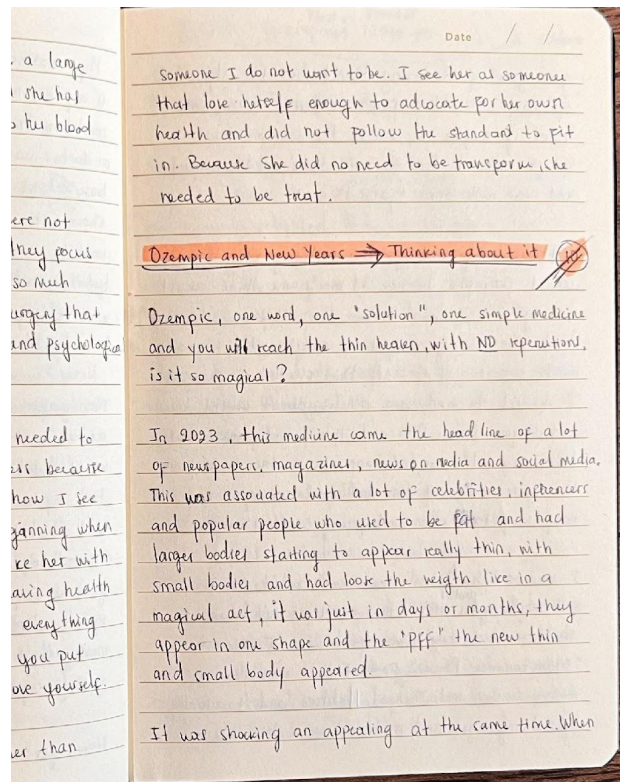 . a large
she has
her blood
ere not
they focus
so much
urgery that
and psychologica
needed to
because
how I see
ginning when
ke her with
aving health
everything
you put
ove yourself.
er than
Date / /
someone I do not want to be. I see her as someone
that love herself enough to advocate for her own
health and did not follow the standard to fit
in. Because she did no need to be transform, she
needed to be treat.
Ozempic and New Years ⇒ Thinking about it
Ozempic, one word, one "solution", one simple medicine
and you will reach the thin heaven, with NO repercutions,
is it so magical?
In 2023, this medicine came the head line of a lot
of newspapers, magazines, news on media and social media.
This was associated with a lot of celebrities, influencers
and popular people who used to be fat and had
larger bodies starting to appear really thin, with
small bodies and had look the weigth like in a
magical act, it was just in days or months, they
appear in one shape and the "PFF" the new thin
and small body appeared.
It was shocking an appealing at the same time. When